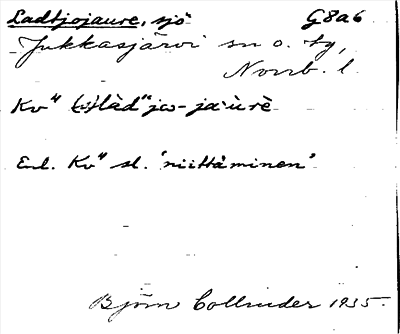 Ladtjojaure, sjö G8a6
Jukkasjärvi sn o. tg,
Norrb. l.
Kv" (ω)làd"jω-ja·ùrè
Enl. Kv" sl. "niittäminen"
Björn Collinder 1935.